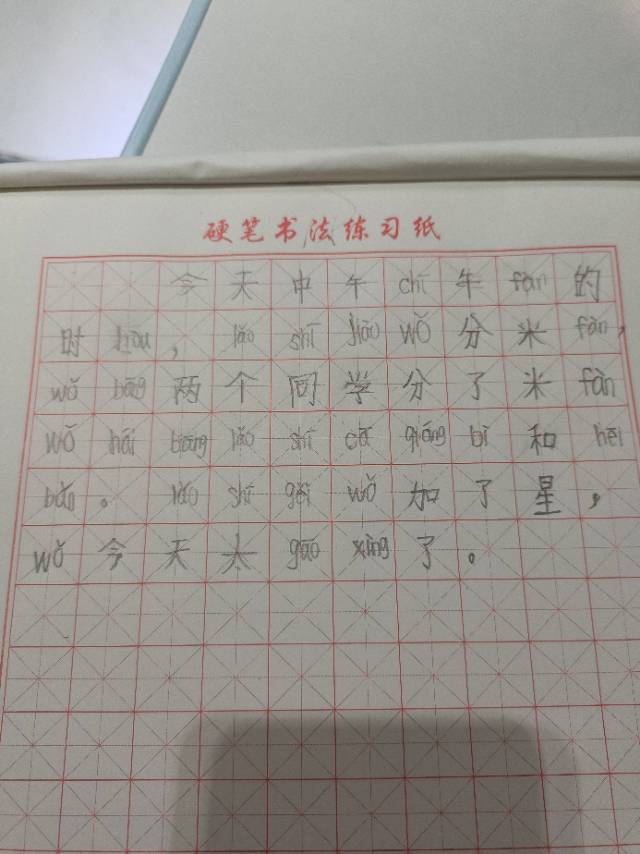 硬笔书法练习纸
今天中午chī午fàn的
时hòu，lǎo shī jiào wǒ分米fàn，
wǒ bāng两个同学分了米fàn
wǒ hái bāng lǎo shī cā qiáng bì和hēi
bǎn。lǎo shī gěi wǒ加了星，
wǒ今天太gāo xìng了。